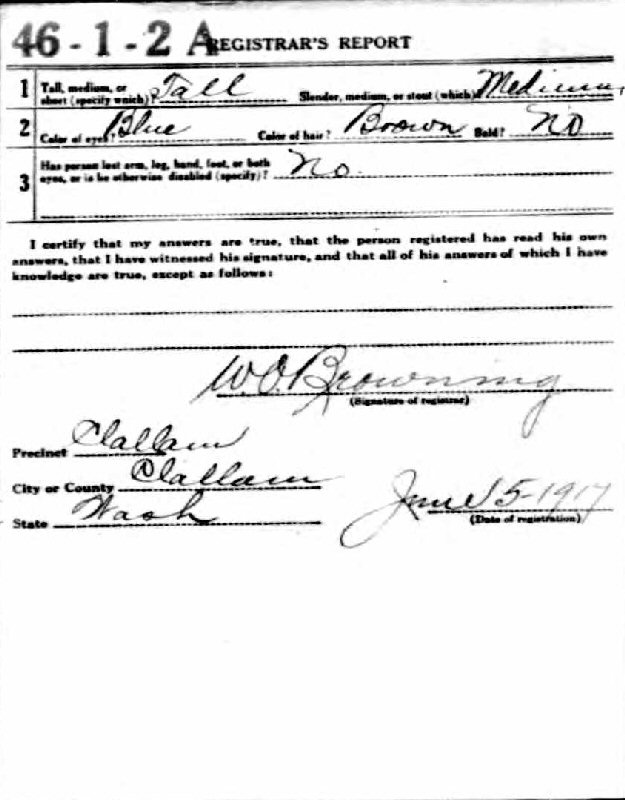 46-1-2 A REGISTRAR'S REPORT
1 Tall, medium, or short (specify which)? Tall Slender, medium, or stout (which) Medium
2 Color of eyes? Blue Color of hair? Brown Bald? No
3 Has person lost arm, leg, hand, foot, or both eyes, or is he otherwise disabled (specify)? No.
I certify that my answers are true, that the person registered has read his own
answers, that I have witnessed his signature, and that all of his answers of which I have
knowledge are true, except as follows:
W.O. Browning
(Signature of registrar)
Precinct Clallam
City or County Clallam
State Wash
June 5-1917
(Date of registration)